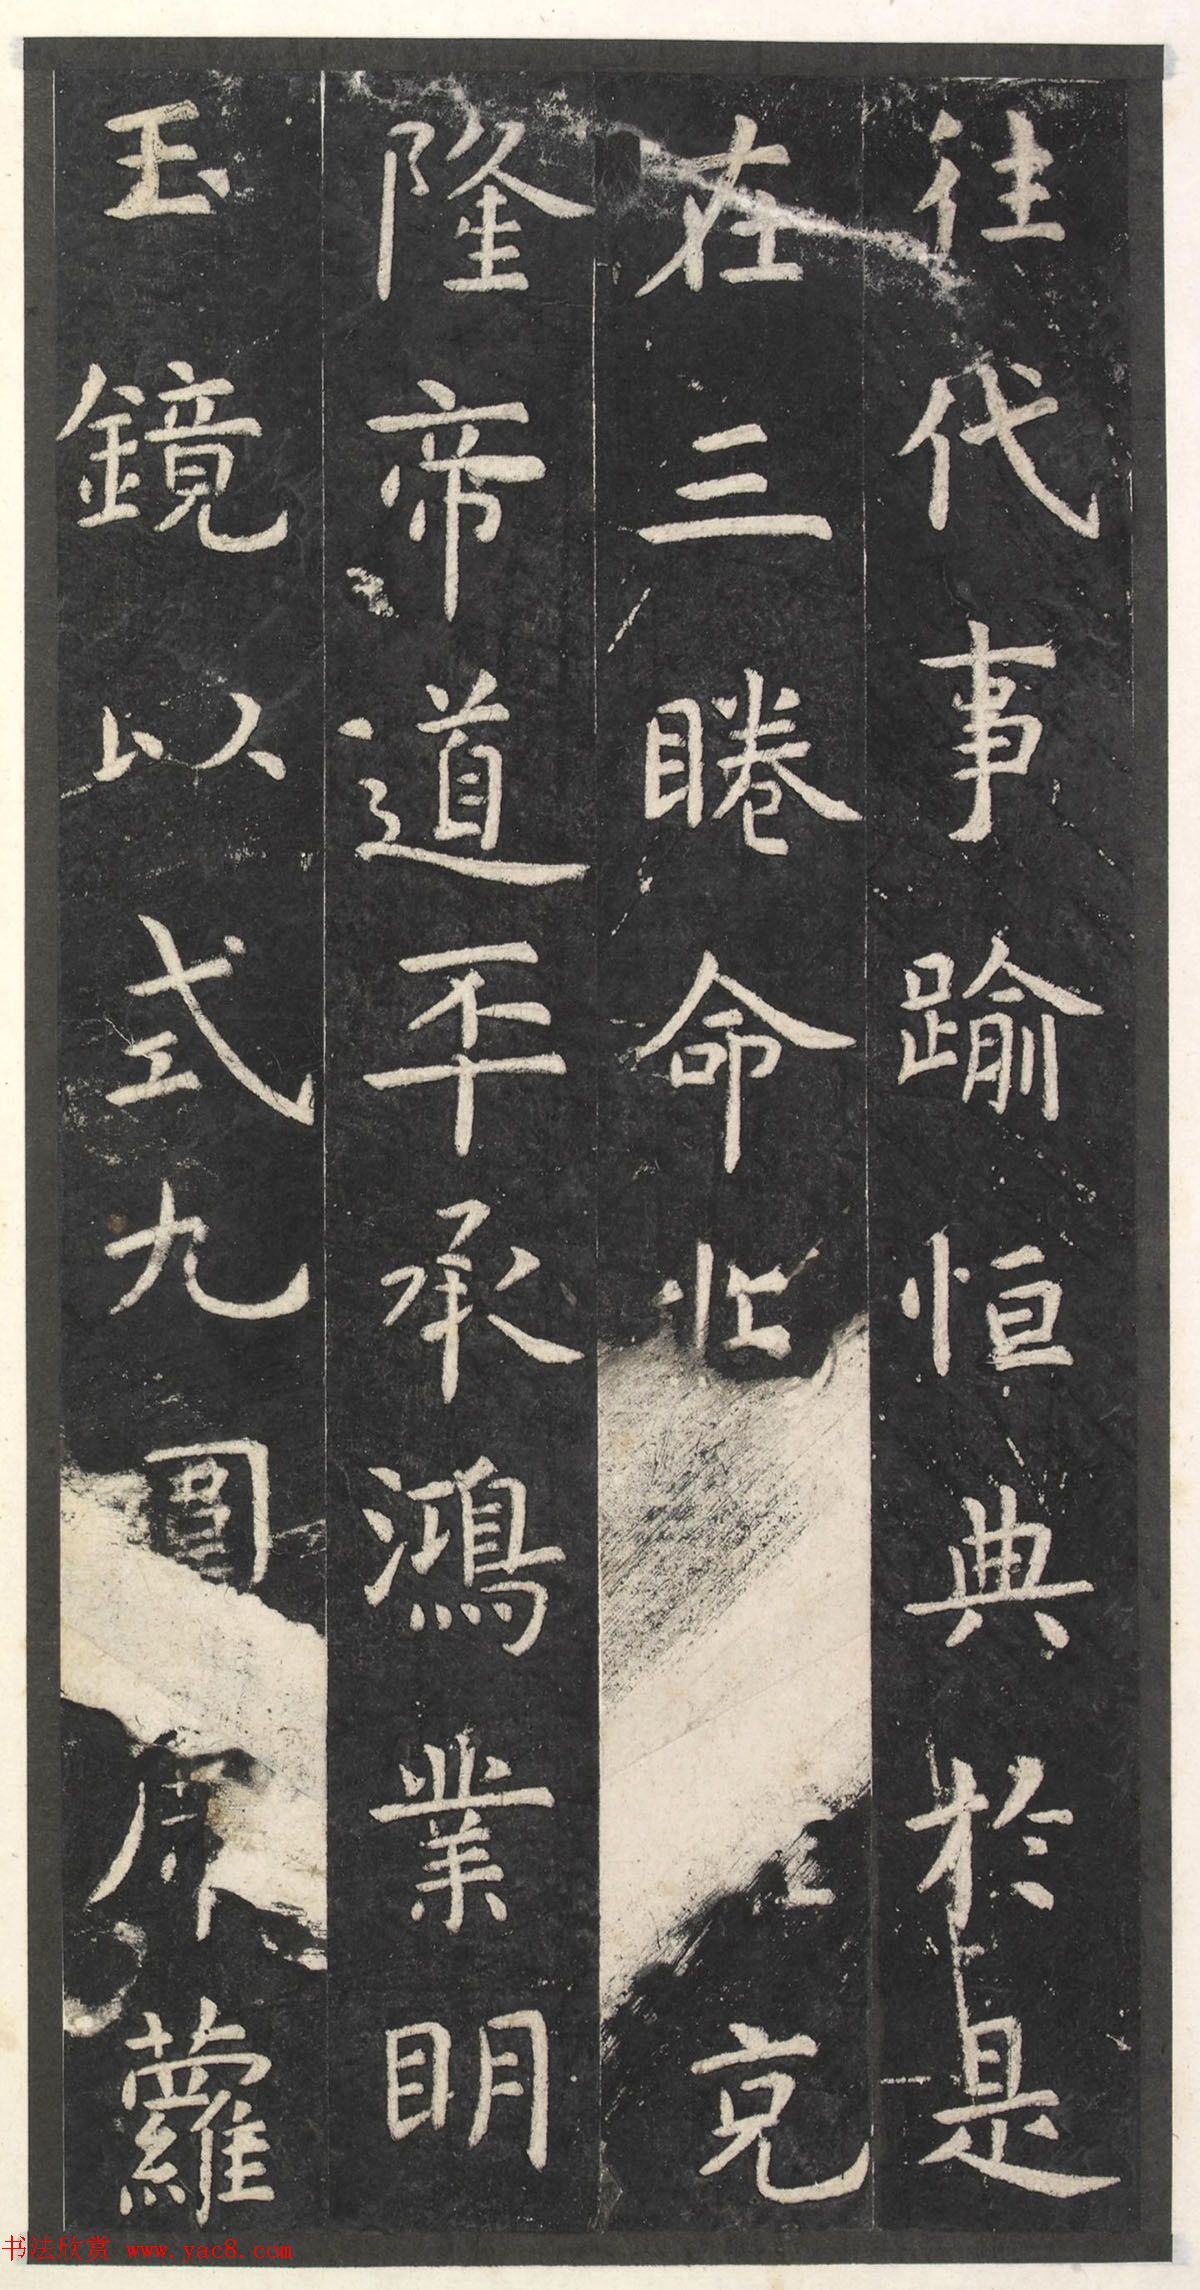 往代事踰恒典於是
在三睠命克
隆帝道丕承鴻業明
玉鏡以式九圍席蘿
书法欣赏 www.yac8.com